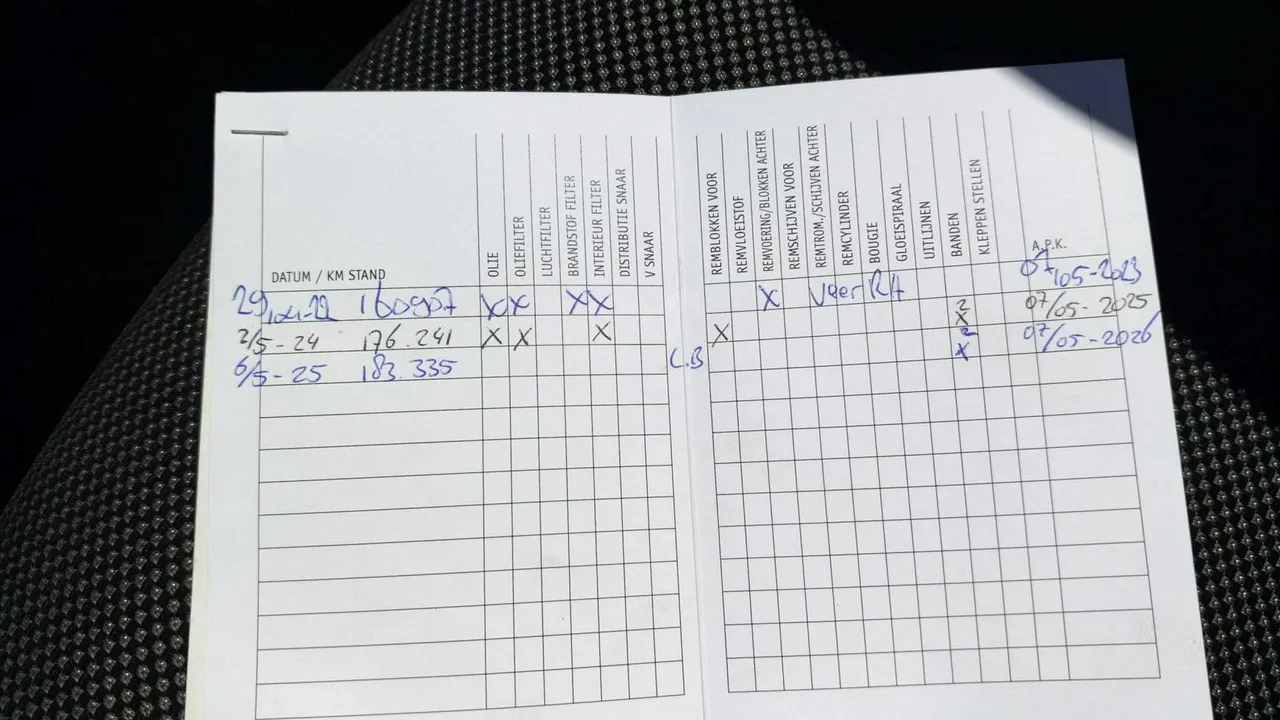 DATUM / KM STAND
OLIE
OLIEFILTER
LUCHTFILTER
BRANDSTOF FILTER
INTERIEUR FILTER
DISTRIBUTIE SNAAR
V SNAAR
REMBLOKKEN VOOR
REMVLOEISTOF
REMVOERING/BLOKKEN ACHTER
REMSCHIJVEN VOOR
REMTROM./SCHIJVEN ACHTER
REMCYLINDER
BOUGIE
GLOEISPIRAAL
UITLIJNEN
BANDEN
KLEPPEN STELLEN
A.P.K.
160907 X X X X X veer RA 07/05-2023
2/5-24 176.241 X X X X 2 X 07/05-2025
6/5-25 183.335 L.B 2 X 07/05-2026